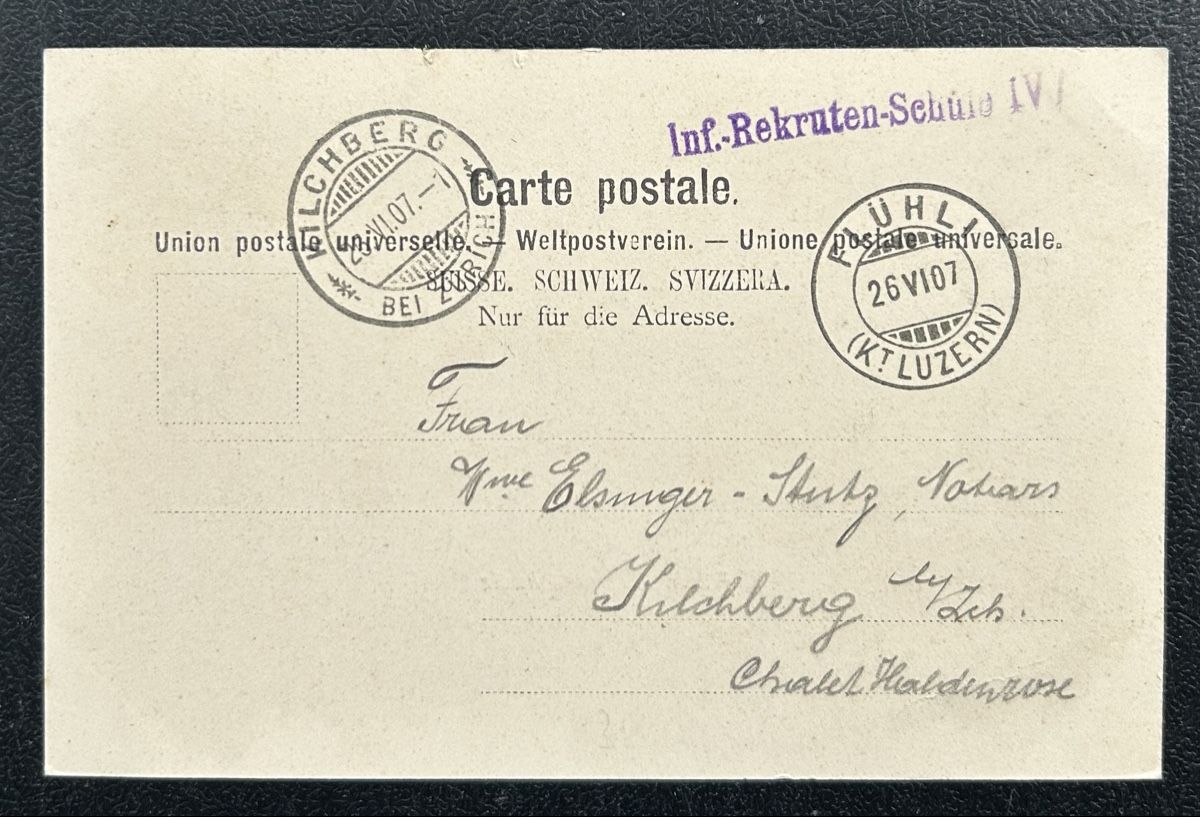 Inf.-Rekruten-Schule IV
KILCHBERG
BEI ZÜRICH
VI.07.–7
Carte postale.
FLÜHLI
26 VI 07
(KT. LUZERN)
Union postale universelle. — Weltpostverein. — Unione postale universale.
SUISSE. SCHWEIZ. SVIZZERA.
Nur für die Adresse.
Frau
Wwe Elsinger - Stutz, Notars
Kilchberg b/Zch.
Chalet Haldenrose